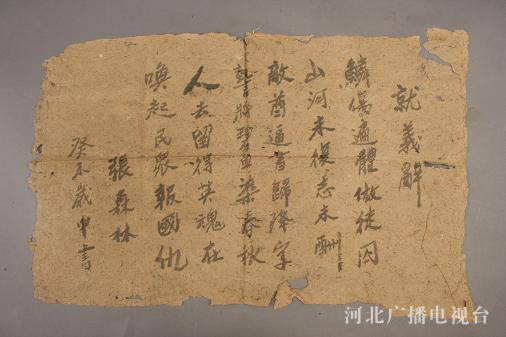 就義辭
鱗傷遍體做徒囚
山河未復志未酬
敵酋逼書歸降字
誓將碧血染春秋
人去留得英魂在
喚起民眾報國仇
張森林
癸未歲中書
河北广播电视台